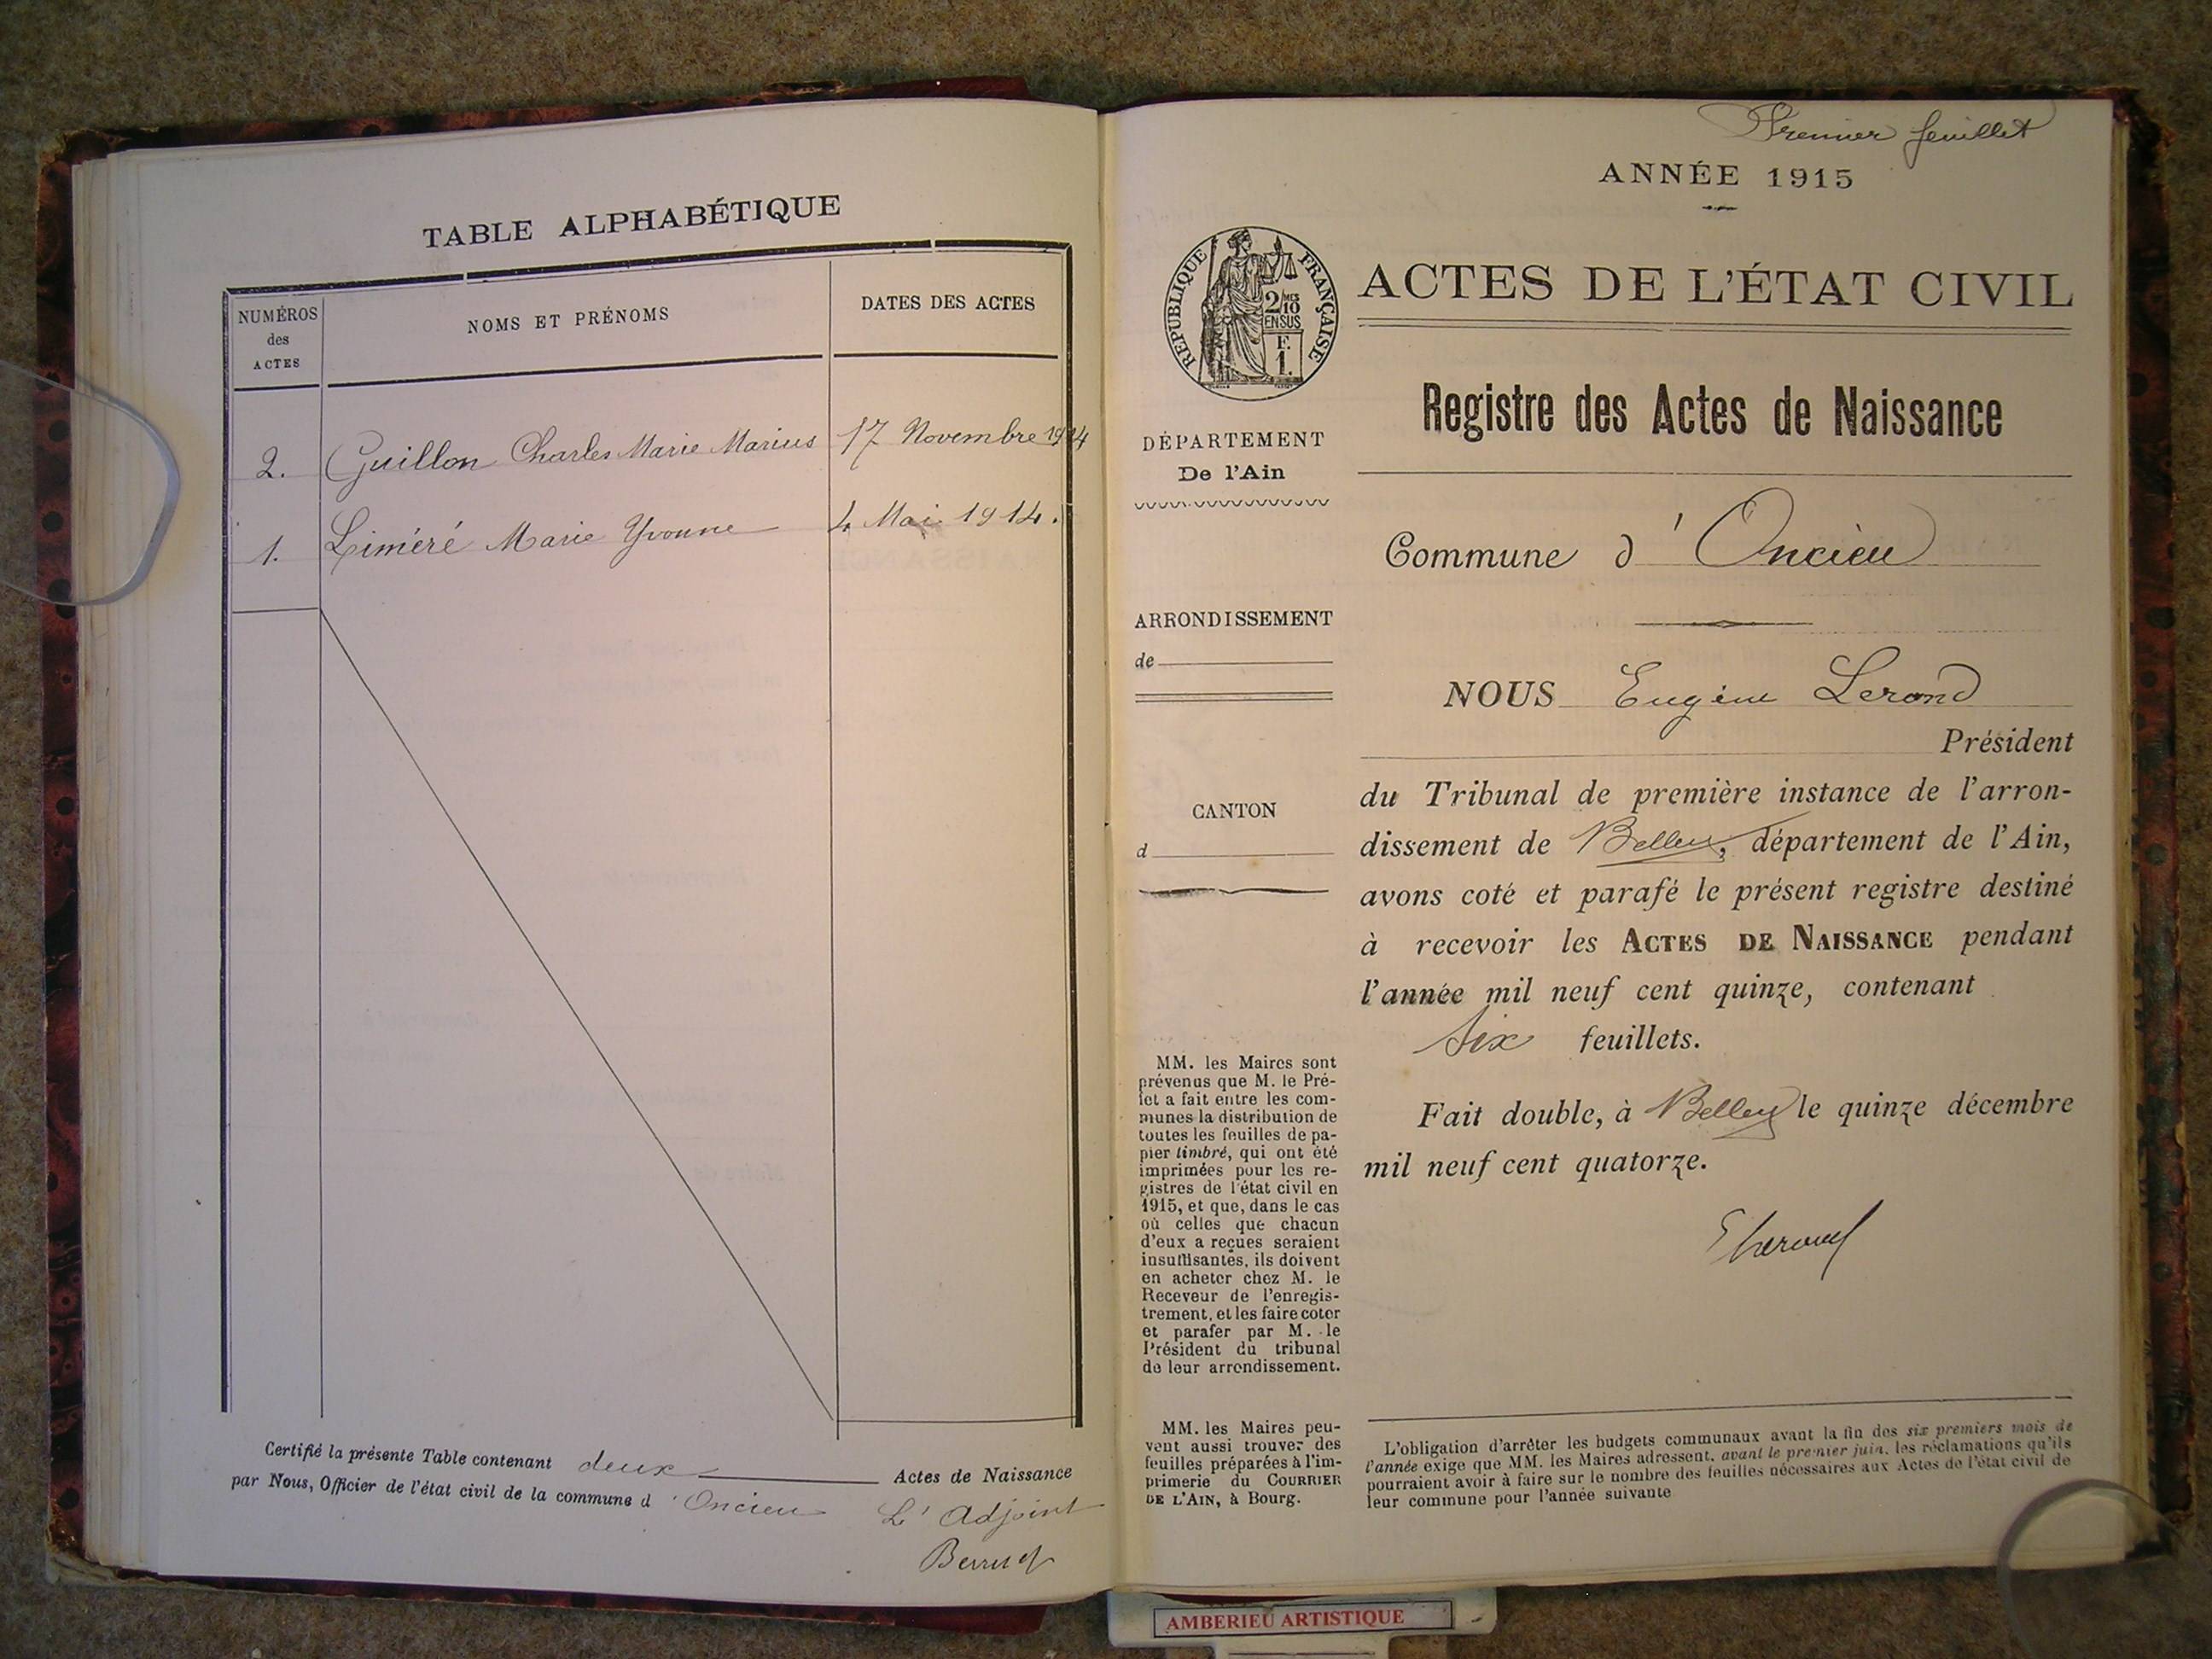 TABLE ALPHABÉTIQUE
NUMÉROS
des
ACTES
NOMS ET PRÉNOMS
DATES DES ACTES
2. Guillon Charles Marie Marius 17 Novembre 1914
1. Liméré Marie Yvonne 4 Mai 1914.
Certifié la présente Table contenant deux Actes de Naissance
par Nous, Officier de l'état civil de la commune d'Oncieu
L'Adjoint
Premier feuillet
ANNÉE 1915
RÉPUBLIQUE FRANÇAISE
2 MES
10
EN SUS
F.
1.
ACTES DE L'ÉTAT CIVIL
Registre des Actes de Naissance
DÉPARTEMENT
De l'Ain
Commune d'Oncieu
ARRONDISSEMENT
de
CANTON
d
NOUS Eugène Lerond
Président
du Tribunal de première instance de l'arron-
dissement de Belley, département de l'Ain,
avons coté et parafé le présent registre destiné
à recevoir les ACTES DE NAISSANCE pendant
l'année mil neuf cent quinze, contenant
six feuillets.
Fait double, à Belley le quinze décembre
mil neuf cent quatorze.
ELerond
MM. les Maires sont
prévenus que M. le Pré-
fet a fait entre les com-
munes la distribution de
toutes les feuilles de pa-
pier timbré, qui ont été
imprimées pour les re-
gistres de l'état civil en
1915, et que, dans le cas
où celles que chacun
d'eux a reçues seraient
insuffisantes, ils doivent
en acheter chez M. le
Receveur de l'enregis-
trement, et les faire coter
et parafer par M. le
Président du tribunal
de leur arrondissement.
MM. les Maires peu-
vent aussi trouver des
feuilles préparées à l'im-
primerie du COURRIER
DE L'AIN, à Bourg.
L'obligation d'arrêter les budgets communaux avant la fin des six premiers mois de
l'année exige que MM. les Maires adressent, avant le premier juin, les réclamations qu'ils
pourraient avoir à faire sur le nombre des feuilles nécessaires aux Actes de l'état civil de
leur commune pour l'année suivante
AMBERIEU ARTISTIQUE